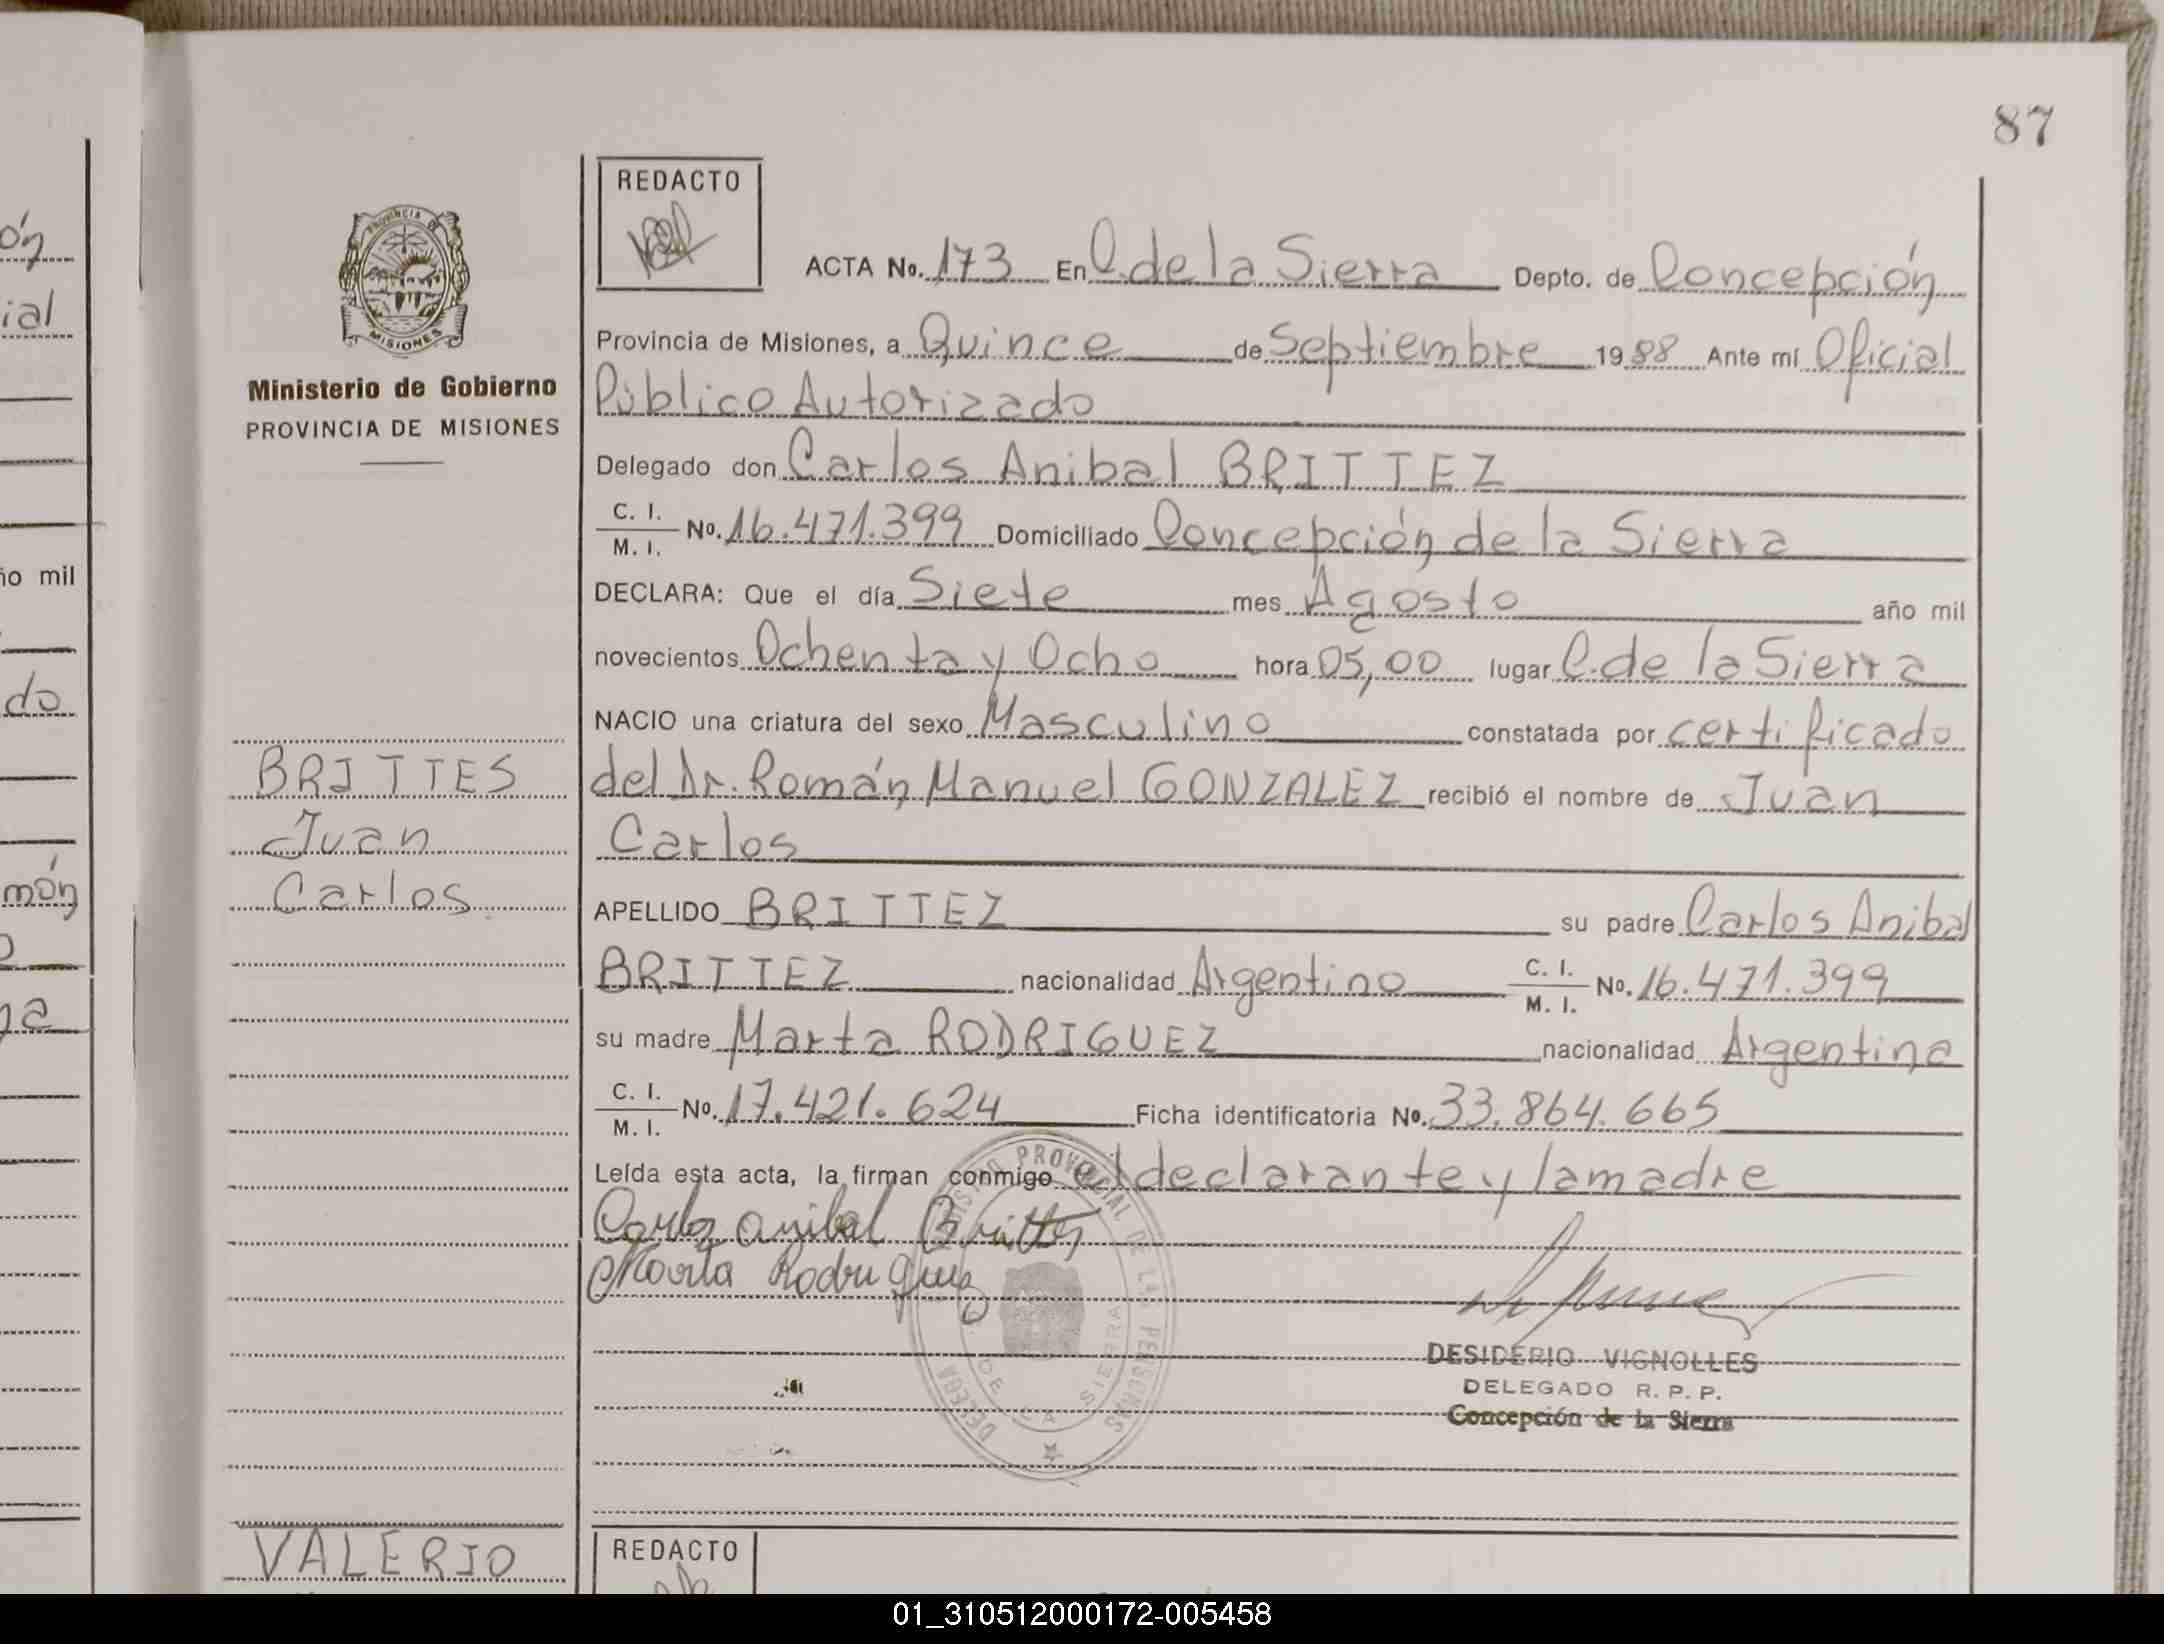 87
REDACTO
PROVINCIA DE
MISIONES
Ministerio de Gobierno
PROVINCIA DE MISIONES
ACTA No. 173 En C. de la Sierra Depto. de Concepción
Provincia de Misiones, a Quince de Septiembre 1988 Ante mí Oficial
Público Autorizado
Delegado don Carlos Anibal BRITTEZ
C. I.
M. I. No. 16.471.399 Domiciliado Concepción de la Sierra
DECLARA: Que el día Siete mes Agosto año mil
novecientos Ochenta y Ocho hora 05,00 lugar C. de la Sierra
NACIO una criatura del sexo Masculino constatada por certificado
del Dr. Román Manuel GONZALEZ recibió el nombre de Juan
Carlos
APELLIDO BRITTEZ su padre Carlos Anibal
BRITTEZ nacionalidad Argentino C. I.
M. I. No. 16.471.399
su madre Marta RODRIGUEZ nacionalidad Argentina
C. I.
M. I. No. 17.421.624 Ficha identificatoria No. 33.864.665
Leída esta acta, la firman conmigo el declarante y la madre
Carlos Anibal Brittes
Marta Rodriguez
BRITTES
Juan
Carlos
PROVINCIAL DE LAS PERSONAS
DE LA SIERRA
DESIDERIO VIGNOLLES
DELEGADO R. P. P.
Concepción de la Sierra
VALERIO
REDACTO
ón
ial
ño mil
do
món
na
01_310512000172-005458